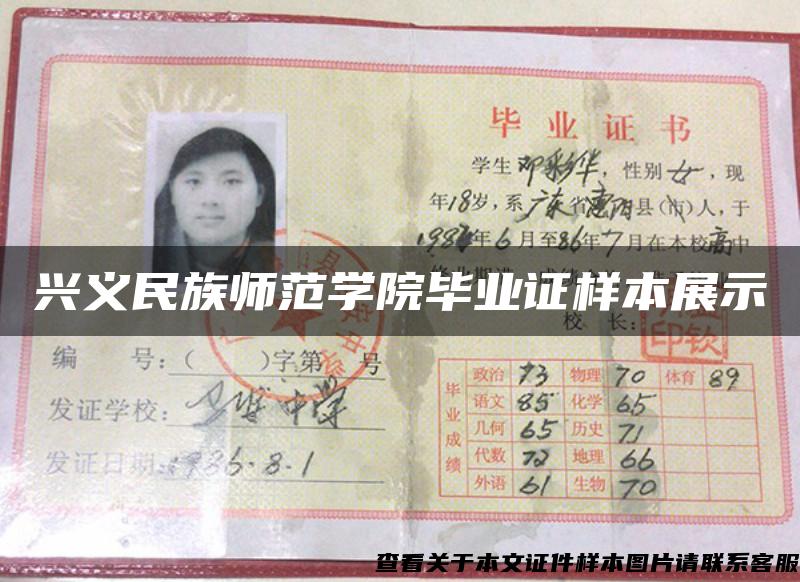 毕业证书
学生邓彩华，性别女，现
年18岁，系广东省惠阳县(市)人，于
年6月至86年7月在本校高中
兴义民族师范学院毕业证样本展示
校 长：
编 号：( )字第 号
发证学校：
中学
发证日期：1986.8.1
毕业成绩
政治 73 物理 70 体育 89
语文 85 化学 65
几何 65 历史 71
代数 72 地理 66
外语 61 生物 70
查看关于本文证件样本图片请联系客服